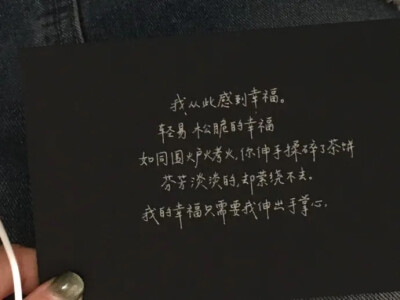 我从此感到幸福。
轻易松脆的幸福
如同围炉烤火,你伸手揉碎了茶饼
芬芳淡淡的,却萦绕不去。
我的幸福只需要我伸出手掌心.